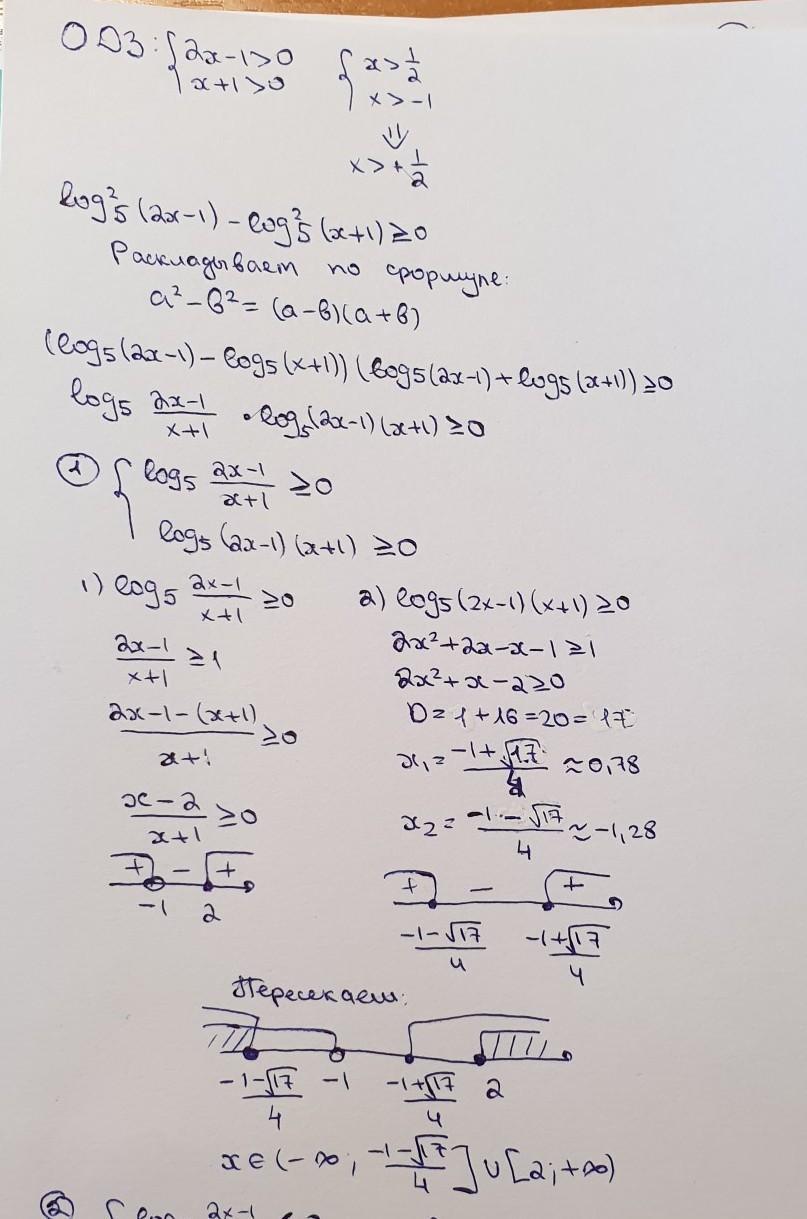 ОДЗ: { 2x-1>0 { x>1/2
x+1>0 x>-1
⇓
x>+1/2
log²5(2x-1)-log²5(x+1)≥0
Раскладывает по формуле:
a²-b²=(a-b)(a+b)
(log5(2x-1)-log5(x+1))(log5(2x-1)+log5(x+1))≥0
log5 (2x-1)/(x+1) • log5(2x-1)(x+1)≥0
① { log5 (2x-1)/(x+1) ≥0
log5(2x-1)(x+1)≥0
1) log5 (2x-1)/(x+1) ≥0
(2x-1)/(x+1) ≥1
(2x-1-(x+1))/(x+1) ≥0
(x-2)/(x+1) ≥0
+ - +
-1 2
2) log5(2x-1)(x+1)≥0
2x²+2x-x-1≥1
2x²+x-2≥0
D=1+16=20=17
x₁=(-1+√17)/4 ≈0,78
x₂=(-1-√17)/4 ≈-1,28
+ - +
(-1-√17)/4 (-1+√17)/4
Пересекаем:
(-1-√17)/4 -1 (-1+√17)/4 2
x∈(-∞; (-1-√17)/4]∪[2;+∞)
② { log 2x-1